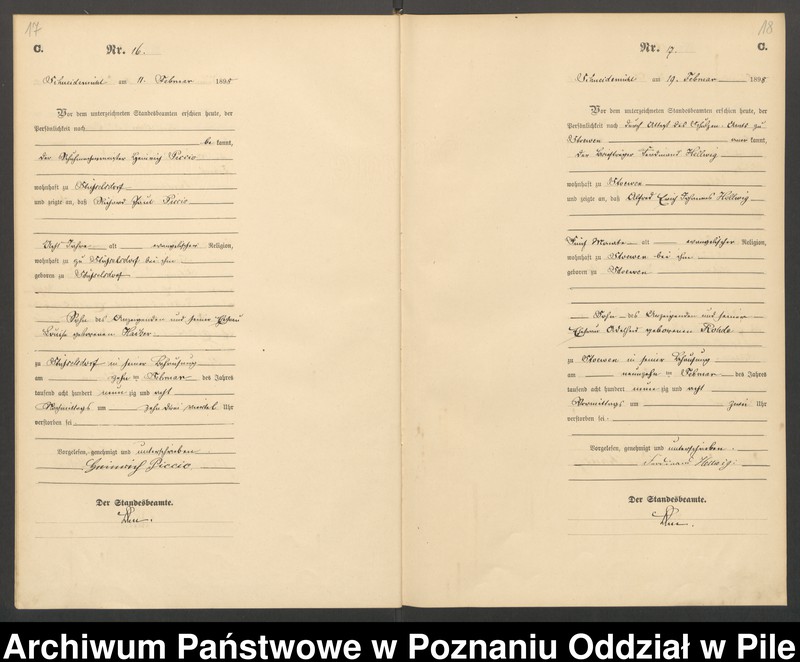 17
C.
Nr. 16.
Schneidemühl am 11. Februar 1898
Vor dem unterzeichneten Standesbeamten erschien heute, der
Persönlichkeit nach
be kannt,
der Schuhmachermeister Heinrich Piccio
wohnhaft zu Stüsselsdorf
und zeigte an, daß Richard Paul Piccio
Acht Jahre alt evangelischer Religion,
wohnhaft zu Stüsselsdorf bei ihm
geboren zu Stüsselsdorf
Sohn des Anzeigenden und seiner Ehefrau
Louise geborenen
zu Stüsselsdorf in seiner Behausung
am zehn ten Februar des Jahres
tausend acht hundert neun zig und acht
Nachmittags um zehn drei viertel Uhr
verstorben sei
Vorgelesen, genehmigt und unterschrieben
Heinrich Piccio
Der Standesbeamte.
18
Nr. 9.
C.
Schneidemühl am 19. Februar 1898
Vor dem unterzeichneten Standesbeamten erschien heute, der
Persönlichkeit nach durch Attest des Schulzen-Amts zu
Stoewen aner kannt,
der Ferdinand Hellwig
wohnhaft zu Stoewen
und zeigte an, daß Alfred Erich Johannes Hellwig
Fünf Monate alt evangelischer Religion,
wohnhaft zu Stoewen bei ihm
geboren zu Stoewen
Sohn des Anzeigenden und seiner
Ehefrau geborenen Rohde
zu Stoewen in seiner Behausung
am neunzehn ten Februar des Jahres
tausend acht hundert neun zig und acht
Vormittags um zwei Uhr
verstorben sei.
Vorgelesen, genehmigt und unterschrieben.
Ferdinand Hellwig.
Der Standesbeamte.
Archiwum Państwowe w Poznaniu Oddział w Pile